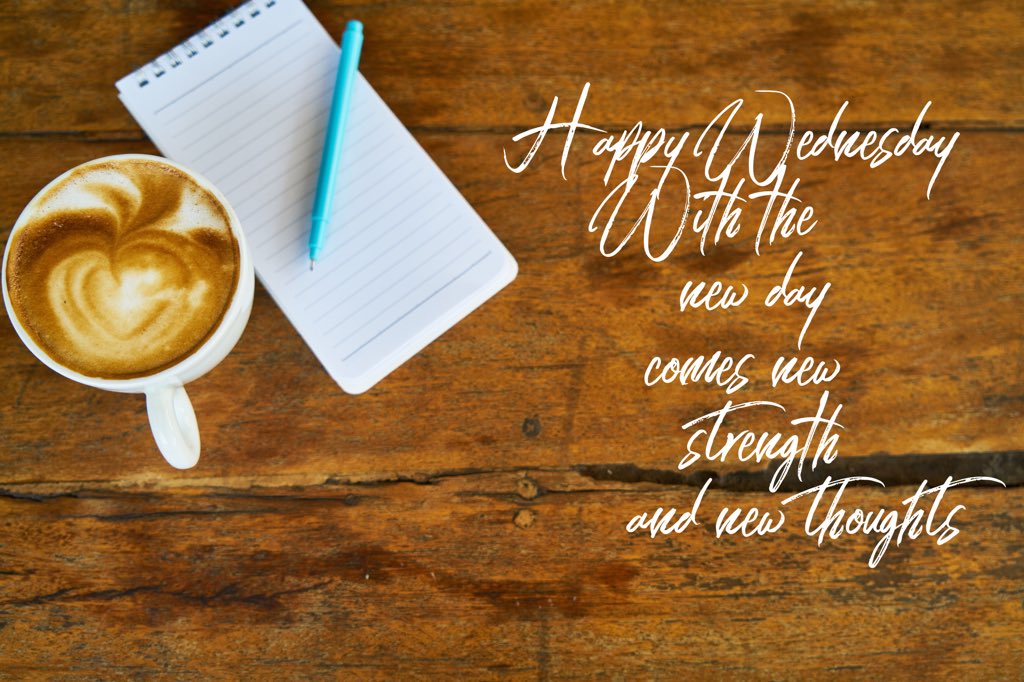 Happy Wednesday
With the
new day
comes new
strength
and new thoughts